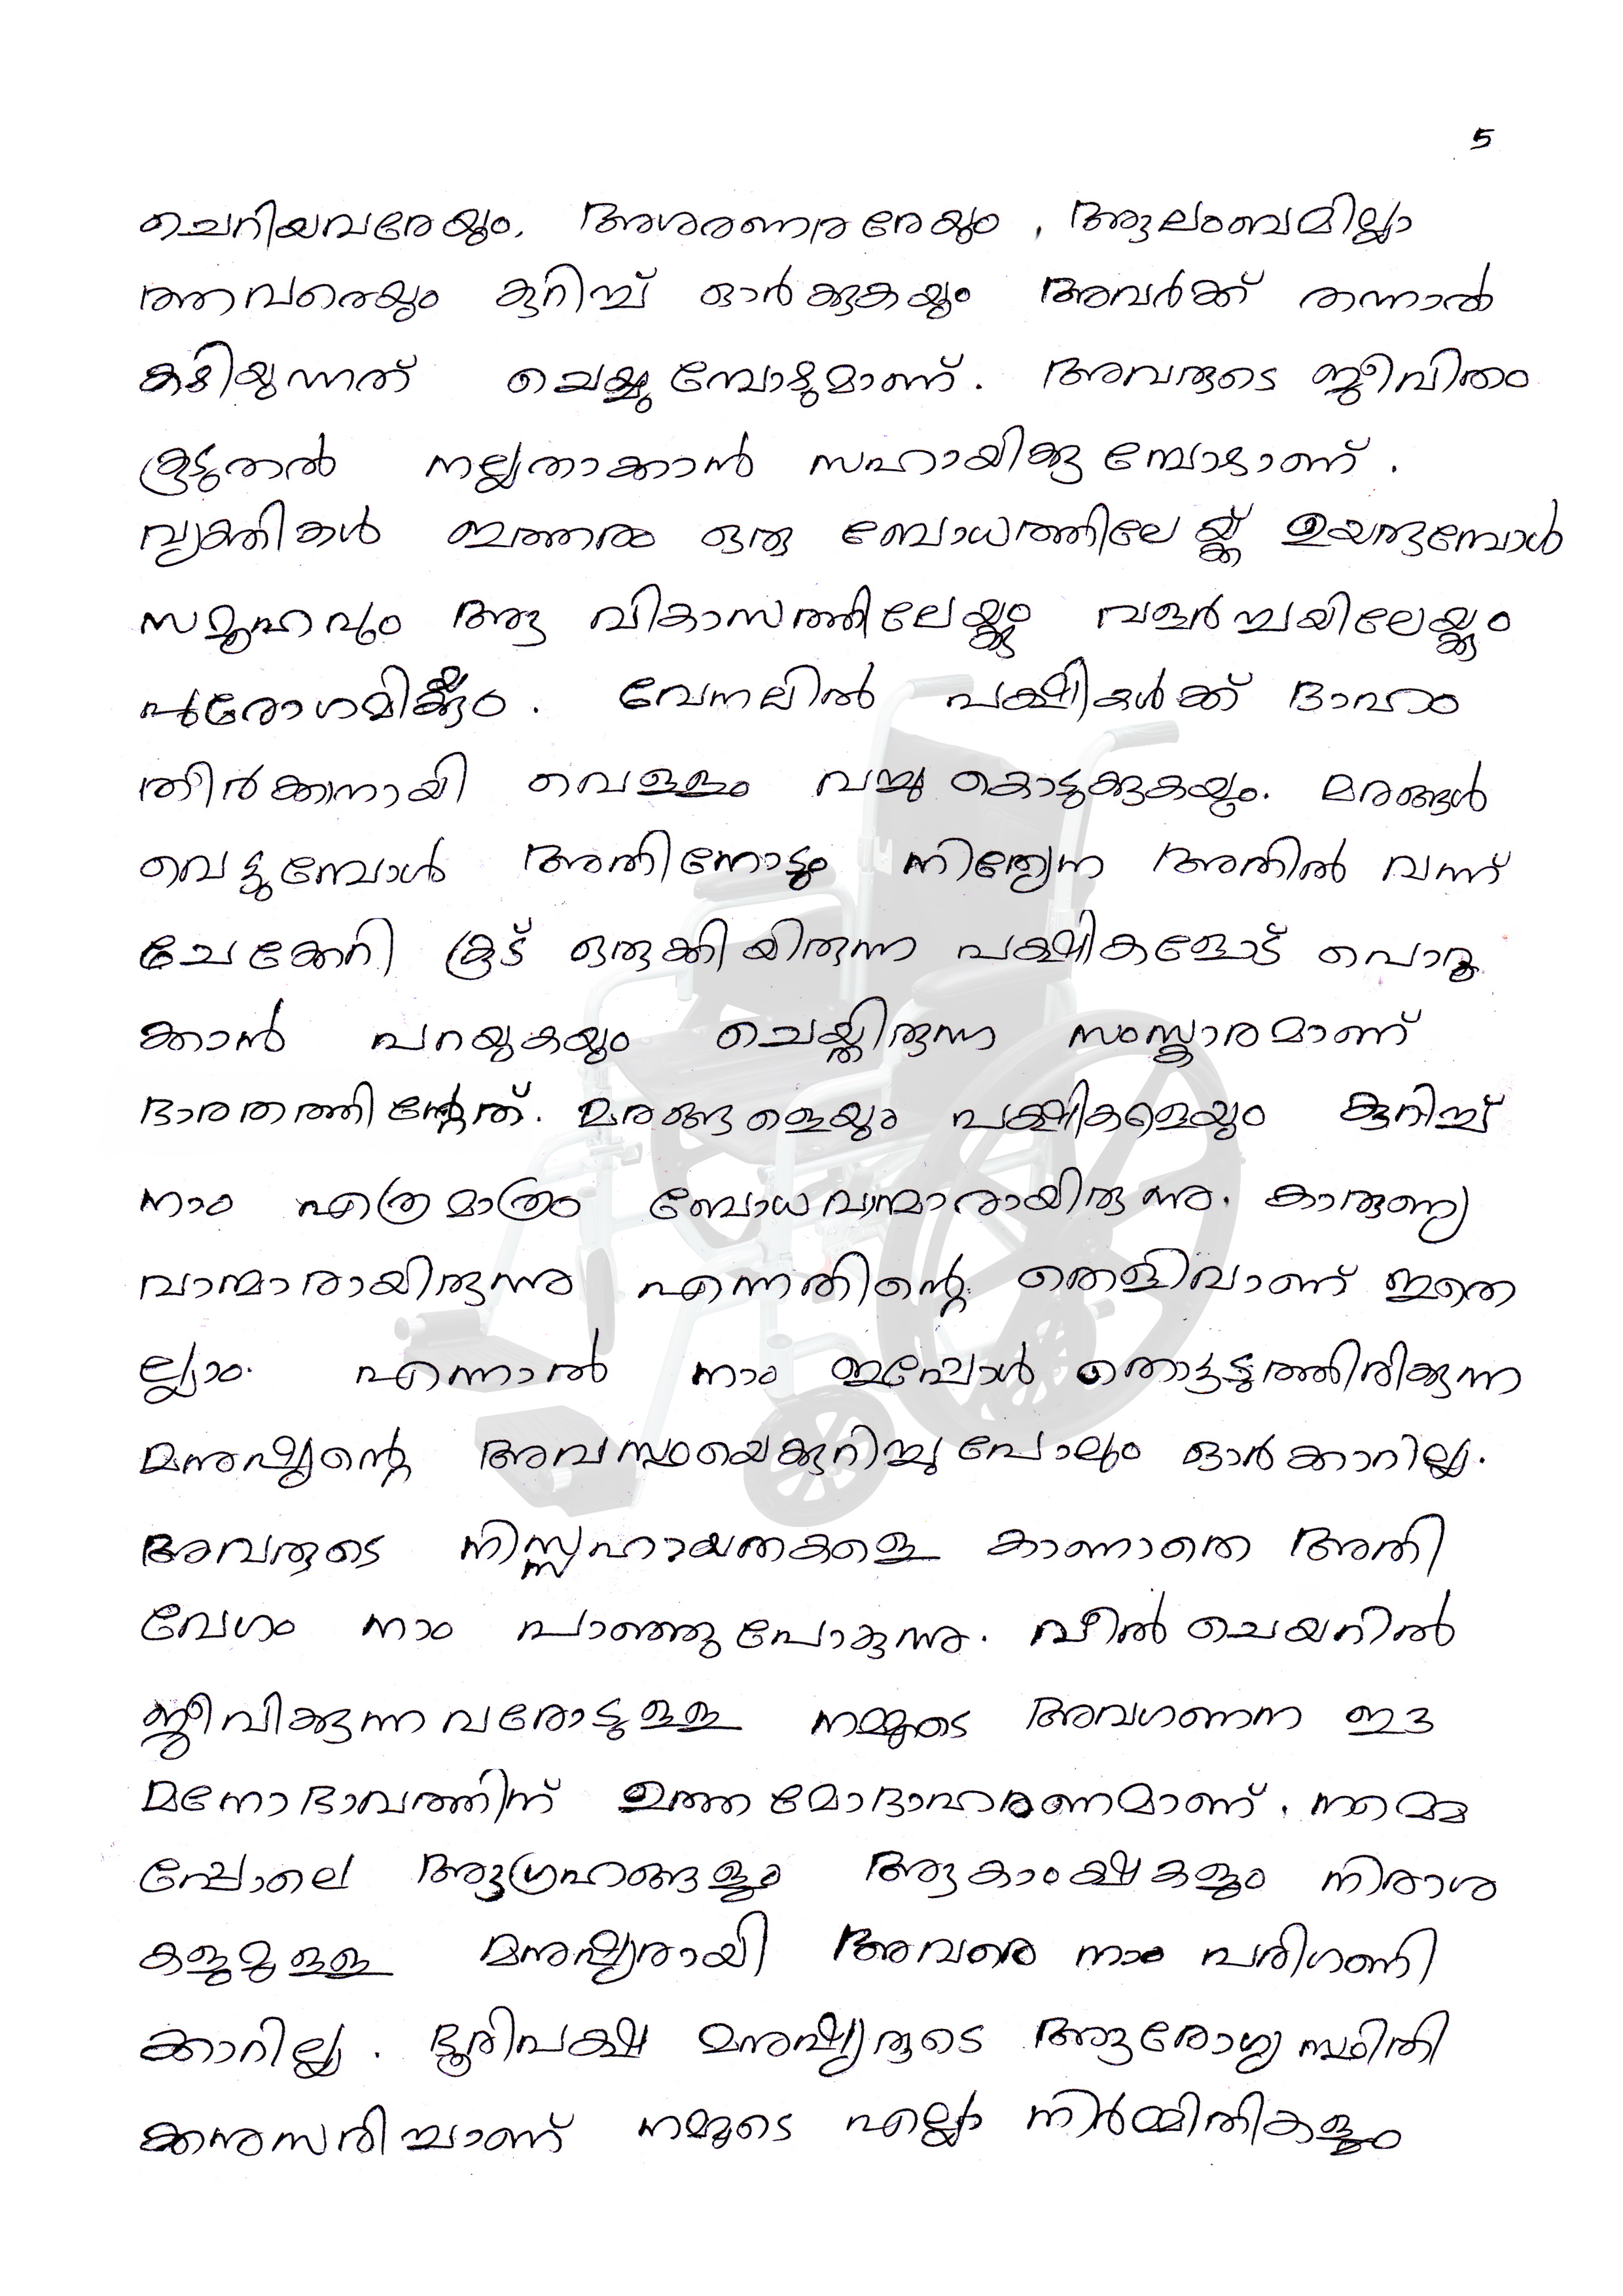 5
ചെറിയവരേയും, അശരണരരേയും, ആലംബമില്ലാ
ത്തവരെയും കുറിച്ച് ഓർക്കുകയും അവർക്ക് തന്നാൽ
കഴിയുന്നത് ചെയ്യുമ്പോഴുമാണ്. അവരുടെ ജീവിതം
കൂടുതൽ നല്ലതാക്കാൻ സഹായിക്കുമ്പോഴാണ്.
വ്യക്തികൾ ഇത്തരം ഒരു ബോധത്തിലേയ്ക്ക് ഉയരുമ്പോൾ
സമൂഹവും ആ വികാസത്തിലേയ്ക്കും വളർച്ചയിലേയ്ക്കും
പുരോഗമിക്കും. വേനലിൽ പക്ഷികൾക്ക് ദാഹം
തീർക്കാനായി വെള്ളം വച്ചു കൊടുക്കുകയും. മരങ്ങൾ
വെട്ടുമ്പോൾ അതിനോടും നിത്യേന അതിൽ വന്ന്
ചേക്കേറി കൂട് ഒരുക്കിയിരുന്ന പക്ഷികളോട് പൊറു
ക്കാൻ പറയുകയും ചെയ്തിരുന്ന സംസ്കാരമാണ്
ഭാരതത്തിന്റേത്. മരങ്ങളെയും പക്ഷികളെയും കുറിച്ച്
നാം എത്രമാത്രം ബോധവാന്മാരായിരുന്നു. കാരുണ്യ
വാന്മാരായിരുന്നു എന്നതിന്റെ തെളിവാണ് ഇതെ
ല്ലാം. എന്നാൽ നാം ഇപ്പോൾ തൊട്ടടുത്തിരിക്കുന്ന
മനുഷ്യന്റെ അവസ്ഥയെക്കുറിച്ചുപോലും ഓർക്കാറില്ല.
അവരുടെ നിസ്സഹായതകളെ കാണാതെ അതി
വേഗം നാം പാഞ്ഞുപോകുന്നു. വീൽ ചെയറിൽ
ജീവിക്കുന്നവരോടുള്ള നമ്മുടെ അവഗണന ഇൗ
മനോഭാവത്തിന് ഉത്തമോദാഹരണമാണ്. നമ്മെ
പ്പോലെ ആഗ്രഹങ്ങളും ആകാംക്ഷകളും നിരാശ
കളുമുള്ള മനുഷ്യരായി അവരെ നാം പരിഗണി
ക്കാറില്ല. ഭൂരിപക്ഷ മനുഷ്യരുടെ ആരോഗ്യസ്ഥിതി
ക്കനുസരിച്ചാണ് നമ്മുടെ എല്ലാ നിർമ്മിതികളും